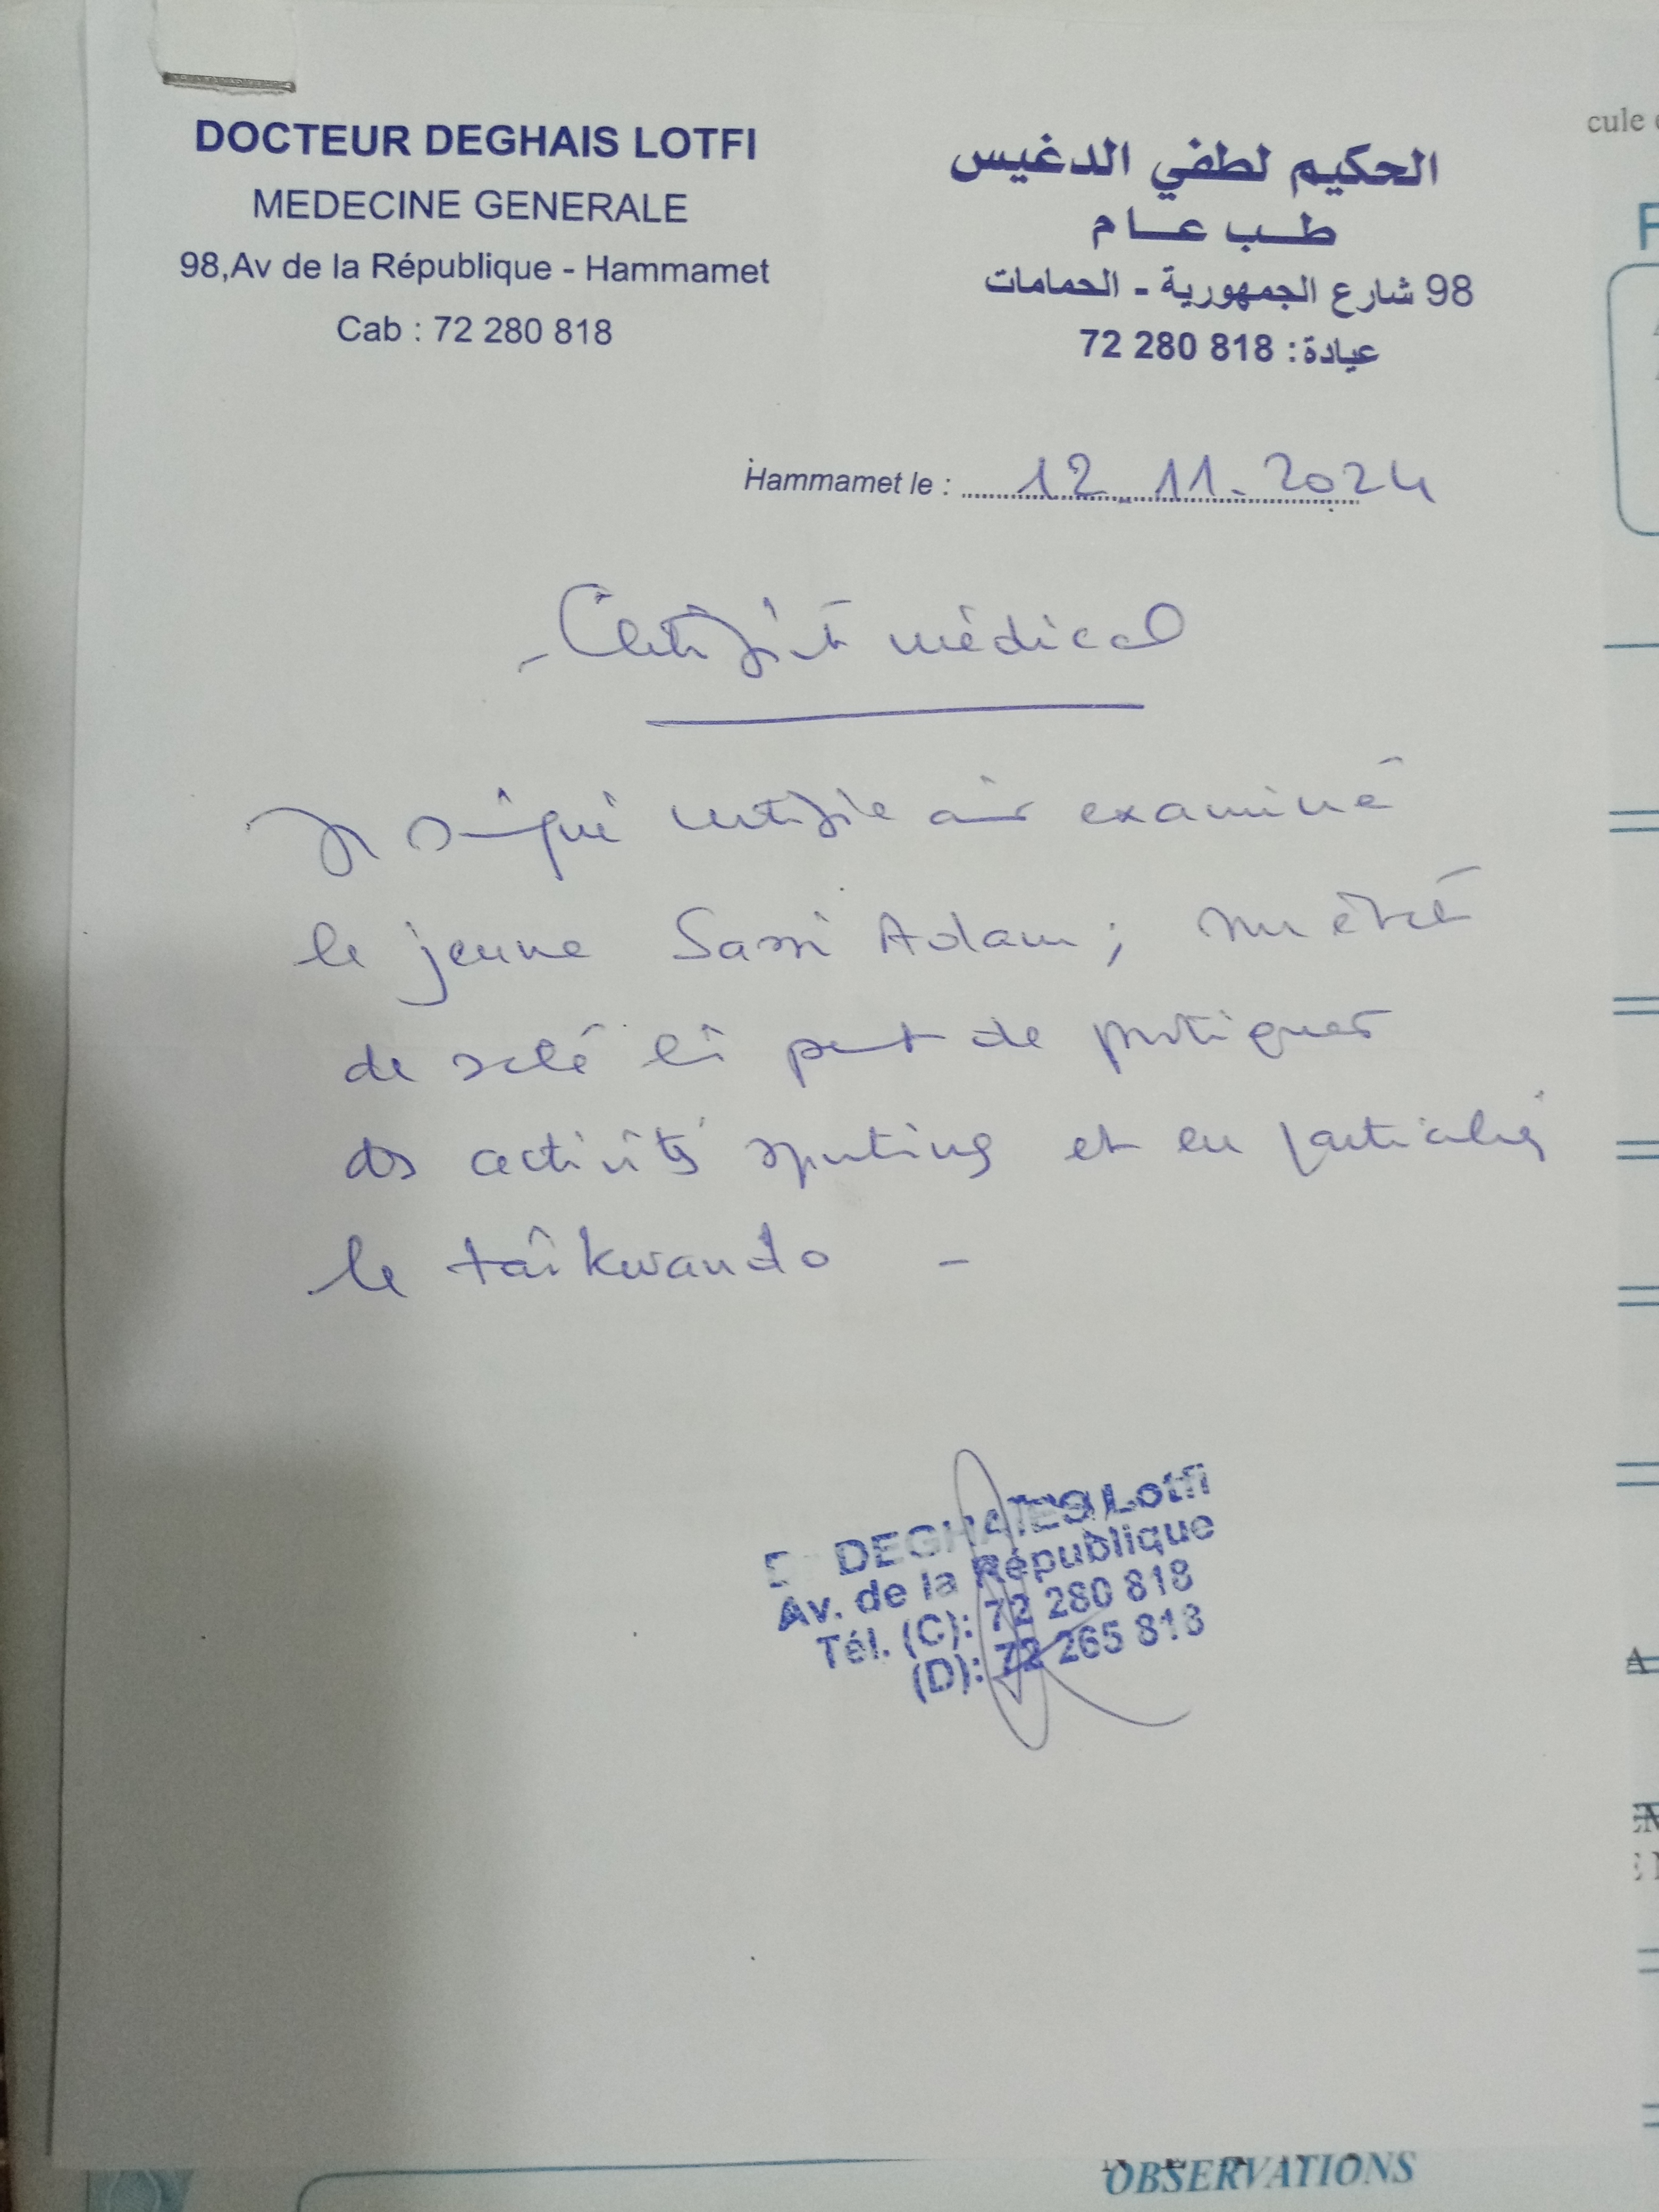 DOCTEUR DEGHAIS LOTFI
MEDECINE GENERALE
98,Av de la République - Hammamet
Cab : 72 280 818
الحكيم لطفي الدغيس
طب عام
98 شارع الجمهورية - الحمامات
عيادة: 818 280 72
Hammamet le : 12.11.2024
Certificat médical
Je soussigné certifie avoir examiné
le jeune Sassi Adam ; son état
de santé lui permet de pratiquer
des activités sportives et en particulier
le taîkwando -
DEGHAIES Lotfi
Av. de la République
Tél. (C): 72 280 818
(D): 72 265 818
cule
OBSERVATIONS